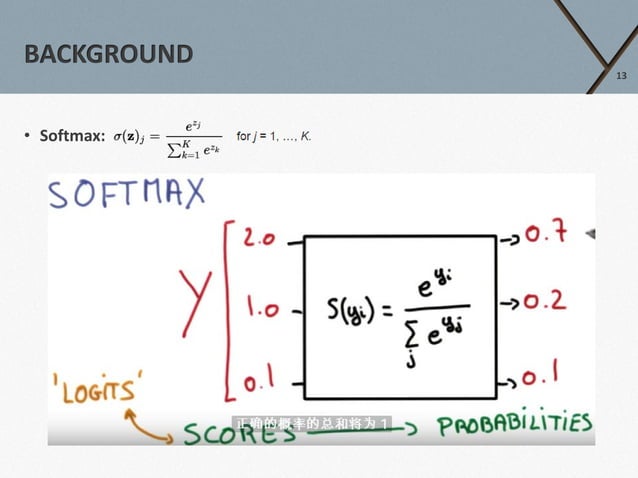 BACKGROUND
13
• Softmax: σ(z)ⱼ = e^{z_j} / ∑_{k=1}^{K} e^{z_k} for j = 1, …, K.
SOFTMAX
2.0
0.7
Y
1.0
S(yᵢ) = e^{yᵢ} / ∑_j e^{yⱼ}
0.2
0.1
0.1
'LOGITS'
正确的概率的总和将为 1
SCORES
PROBABILITIES